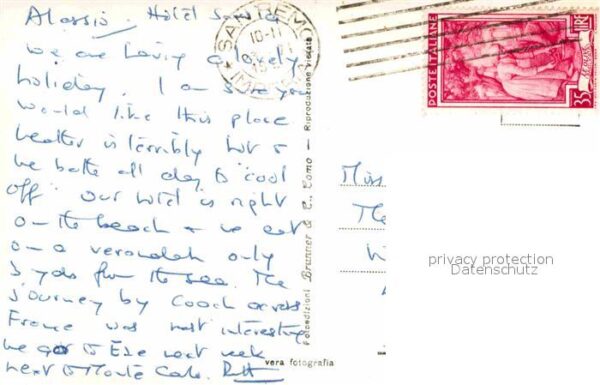 Alassio. Hotel Savoia
We are having a lovely
holiday. I am sure you
would like this place
weather is terribly hot &
we bathe all day to cool
off. Our hotel is right
on the beach & we eat
on a verandah only
3 yds from the sea. The
journey by coach across
France was most interesting
we go to Eze next week
next to Monte Carlo. Ruth
SAN REMO
10-11
POSTE ITALIANE
LIRE
35
Fotoedizioni Brunner & C., Como — Riproduzione vietata
vera fotografia
Miss
The
privacy protection
Datenschutz